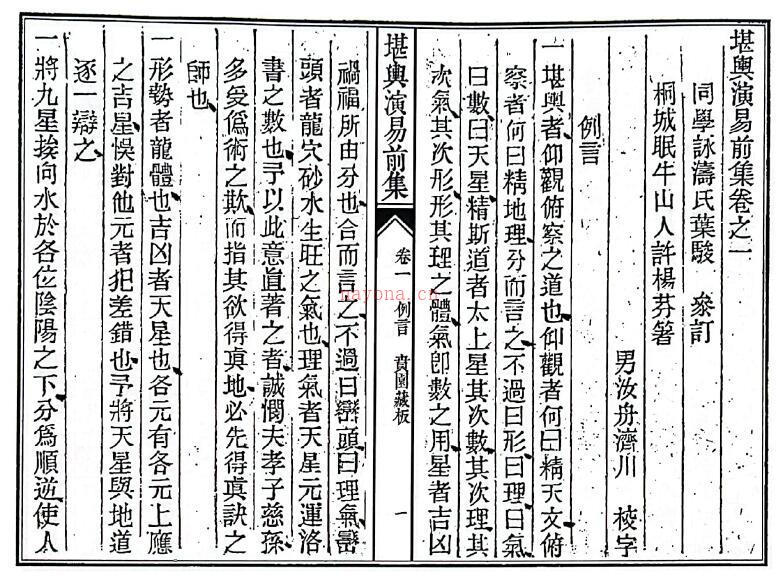 堪輿演易前集卷之一
同學詠濤氏葉駿　叅訂
桐城眠牛山人許楊芬著
男汝舟濟川　校字
例言
一堪輿者仰觀俯察之道也仰觀者何曰精天文俯
察者何曰精地理分而言之不過曰形曰理曰氣
曰數曰天星精斯道者太上星其次數其次理其
次氣其次形形其理之體氣卽數之用星者吉凶
堪輿演易前集
卷一　例言　賁園藏板　一
禍福所由分也合而言之不過曰巒頭曰理氣巒
頭者龍穴砂水生旺之氣也理氣者天星元運洛
書之數也予以此意眞著之者誠憫夫孝子慈孫
多受僞術之欺而指其欲得眞地必先得眞訣之
師也
一形勢者龍體也吉凶者天星也各元有各元上應
之吉星悞對他元者犯差錯也予將天星與地道
逐一辯之
一將九星挨向水於各位陰陽之下分爲順逆使人
nayona.cn